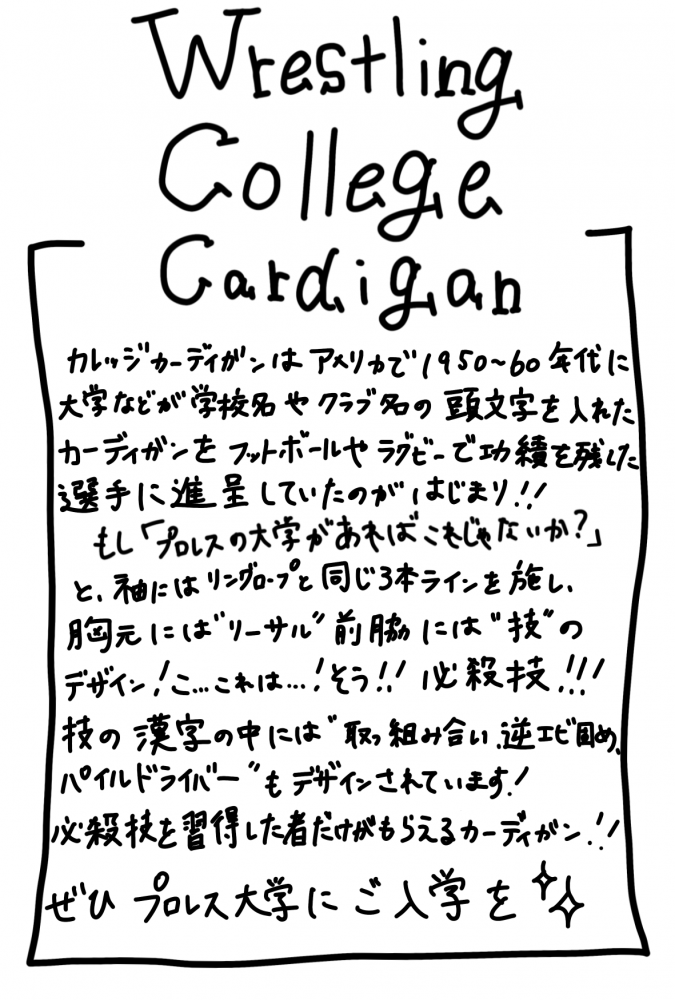 Wrestling
College
Cardigan
カレッジカーディガンはアメリカで1950~60年代に
大学などが学校名やクラブ名の頭文字を入れた
カーディガンをフットボールやラグビーで功績を残した
選手に進呈していたのがはじまり!!
もし「プロレスの大学があればこれじゃないか?」
と、袖にはリングロープと同じ3本ラインを施し、
胸元には"リーサル"前脇には"技"の
デザイン!こ...これは...!そう!!必殺技!!!
技の漢字の中には"取っ組み合い、逆エビ固め、
パイルドライバー"もデザインされています!
必殺技を習得した者だけがもらえるカーディガン!!
ぜひプロレス大学にご入学を